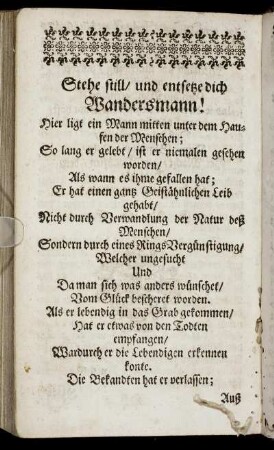 Stehe still/ und entsetze dich
Wandersmann!
Hier ligt ein Mann mitten unter dem Hau-
fen der Menschen;
So lang er gelebt/ ist er niemalen gesehen
worden/
Als wann es ihme gefallen hat;
Er hat einen gantz Geistähnlichen Leib
gehabt/
Nicht durch Verwandlung der Natur deß
Menschen/
Sondern durch eines Rings Vergünstigung/
Welcher ungesucht
Und
Da man sich was anders wünschet/
Vom Glück bescheret worden.
Als er lebendig in das Grab gekommen/
Hat er etwas von den Todten
empfangen/
Wardurch er die Lebendigen erkennen
konte.
Die Bekandten hat er verlassen;
Auß